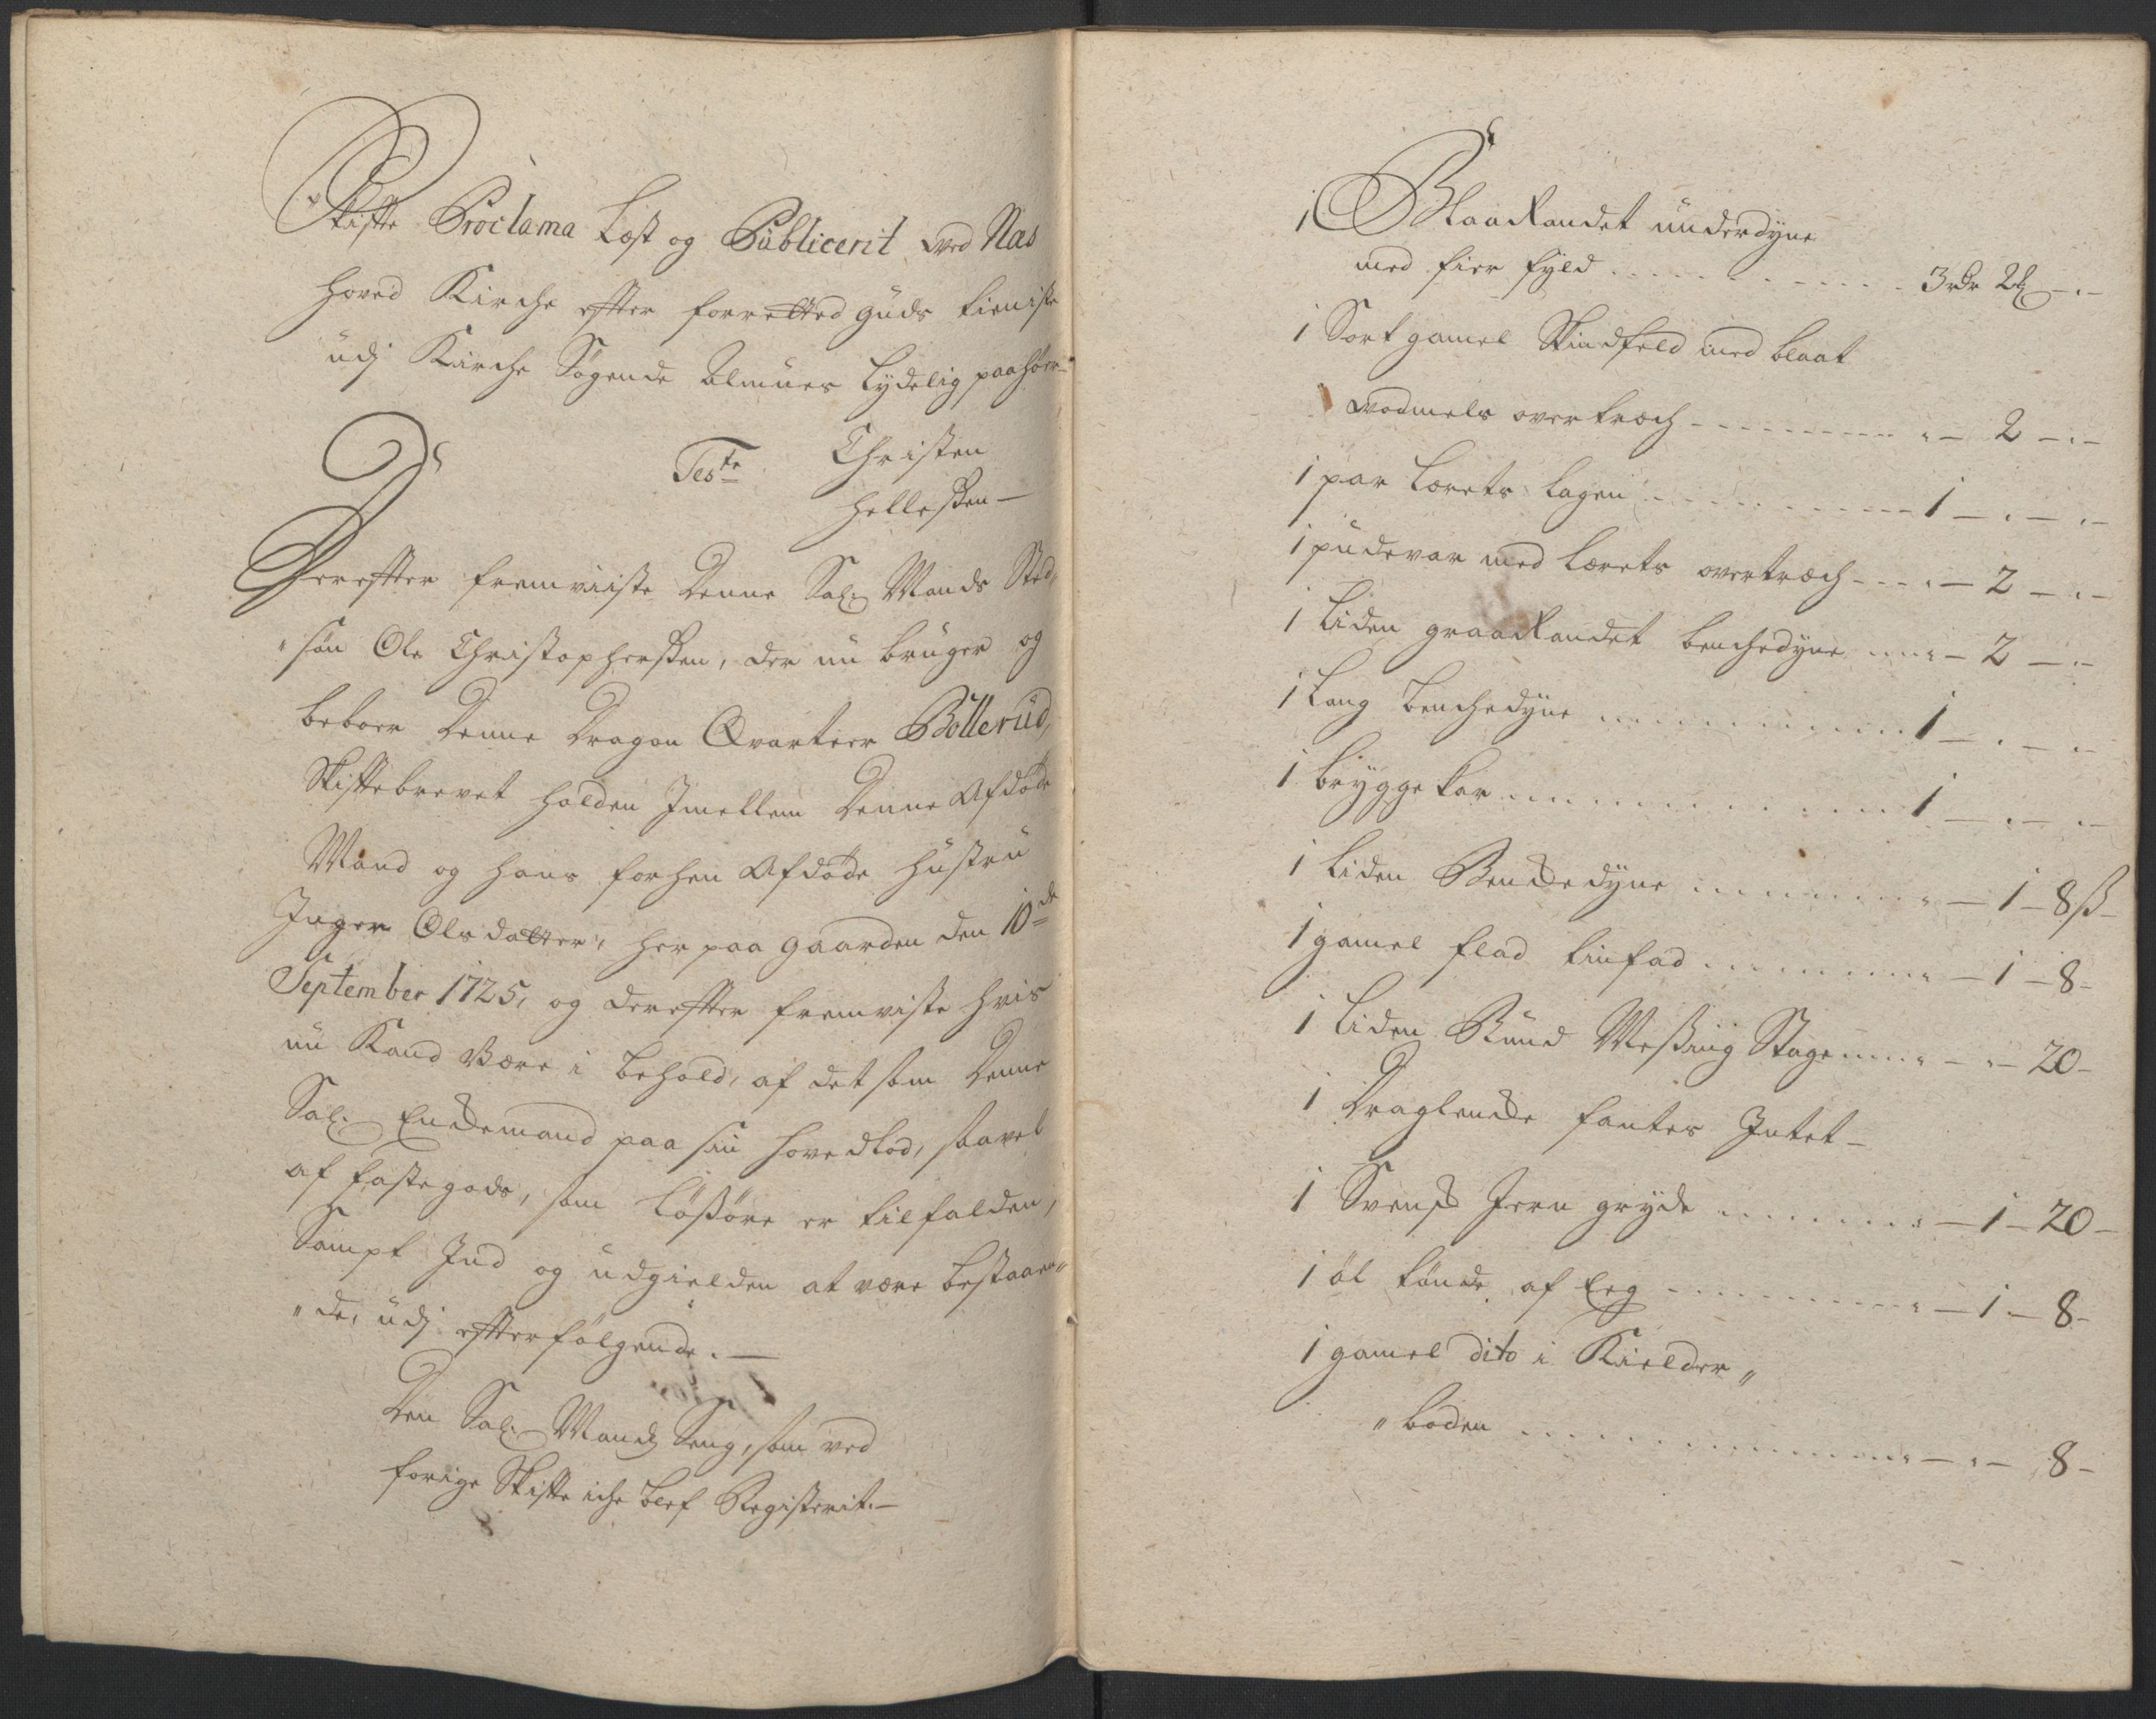 Skifte Proclama Læst og Publicerit ved Næs
hoved Kirche efter forretted Guds tieniste
udj Kirche Søgende Almues lydelig paahör-
Test<sup>e</sup> Christen
Helleßen —
Derefter fremviiste denne Sal: Mands Sted,,
,,søn Ole Christophersen, der nu bruger og
beboer denne Dragon Qvarteer Böllerud,
Skiftebrevet holden Imellem denne Afdøde
Mand og hans forhen Afdøde Hustru
Inger Olsdatter, her paa gaarden den 10<sup>de</sup>
September 1725, og derefter fremviste hvis
nu Kand Være i behold, af det som denne
Sal: Enckemand paa sin hovedlod, saavel
af fastegods, som Lößöre er tilfalden,
Sampt Ind og udgielden at være bestaaen,,
,,de, udj efterfølgende. —
Den Sal: Mands Seng, som ved
forige Skifte iche blef Registerit. —
1 Blaarandet underdyne
med fier fyld . . . . 3 rdr 2 —.—
1 Sort gamel Skindfeld med blaat
vadmels overtræch - - - . — 2 — . —
1 par Lærets lagen . . . . 1 — . — . —
1 pudevar med Lærets overtræch - - - . — 2 — . —
1 Liden graarandet benchedyne . . . — 2 — . —
1 Lang benchedyne . . . . 1 — . — . —
1 brygge kar . . . . 1 — . — . —
1 liden Benckedyne . . . . — 1 — 8 ß —
1 gamel flad tinfad . . . . — 1 — 8 -
1 liden Rund Meßing Stage . . . . — . — 20 -
1 Draglencke fantes Intet —
1 Svensk Jern gryde . . . . — 1 — 20 —
1 öl tønde af Eeg . . . . — 1 — 8 -
1 gamel dito i Kielder ,,
,, boden . . . . — . — 8 -